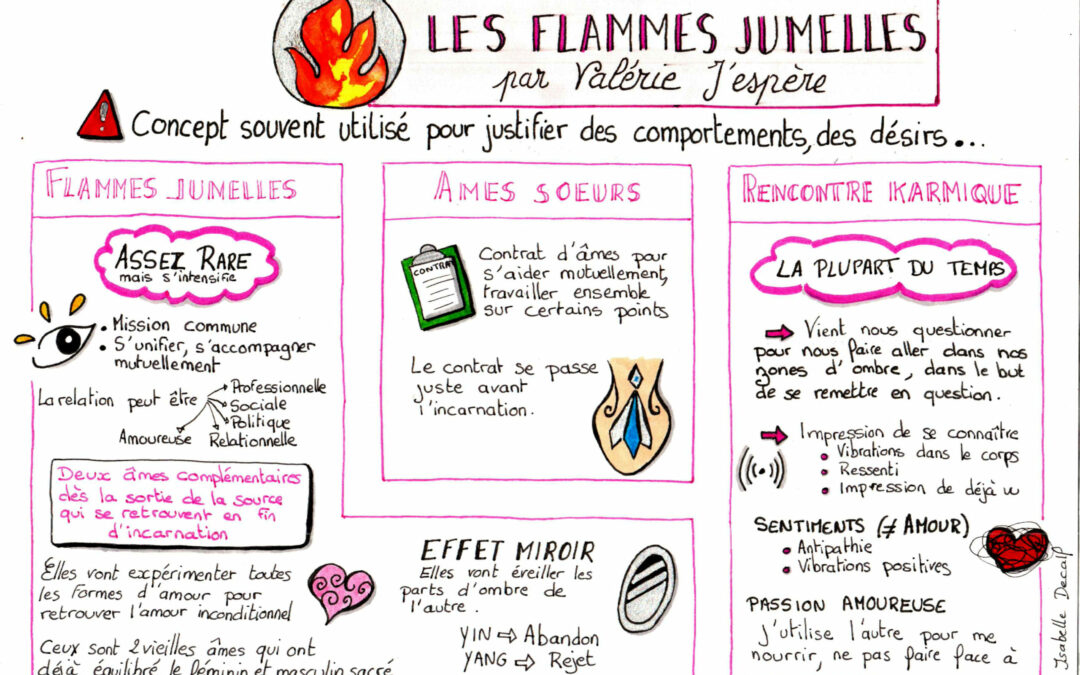 LES FLAMMES JUMELLES
par Valérie J'espère
Concept souvent utilisé pour justifier des comportements, des désirs...
FLAMMES JUMELLES
ASSEZ RARE
mais s'intensifie
• Mission commune
• S'unifier, s'accompagner
mutuellement
La relation peut être
Professionnelle
Sociale
Politique
Relationnelle
Amoureuse
Deux âmes complémentaires
dès la sortie de la source
qui se retrouvent en fin
d'incarnation
Elles vont expérimenter toutes
les formes d'amour pour
retrouver l'amour inconditionnel
Ceux sont 2 vieilles âmes qui ont
déjà équilibré le féminin et masculin sacré
AMES SOEURS
CONTRAT
Contrat d'âmes pour
s'aider mutuellement,
travailler ensemble
sur certains points
Le contrat se passe
juste avant
l'incarnation.
EFFET MIROIR
Elles vont éveiller les
parts d'ombre de
l'autre.
YIN ⇨ Abandon
YANG ⇨ Rejet
RENCONTRE KARMIQUE
LA PLUPART DU TEMPS
➡ Vient nous questionner
pour nous faire aller dans nos
zones d'ombre, dans le but
de se remettre en question.
➡ Impression de se connaître
• Vibrations dans le corps
• Ressenti
• Impression de déjà vu
SENTIMENTS (≠ AMOUR)
• Antipathie
• Vibrations positives
PASSION AMOUREUSE
J'utilise l'autre pour me
nourrir, ne pas faire face à
Isabelle Decap